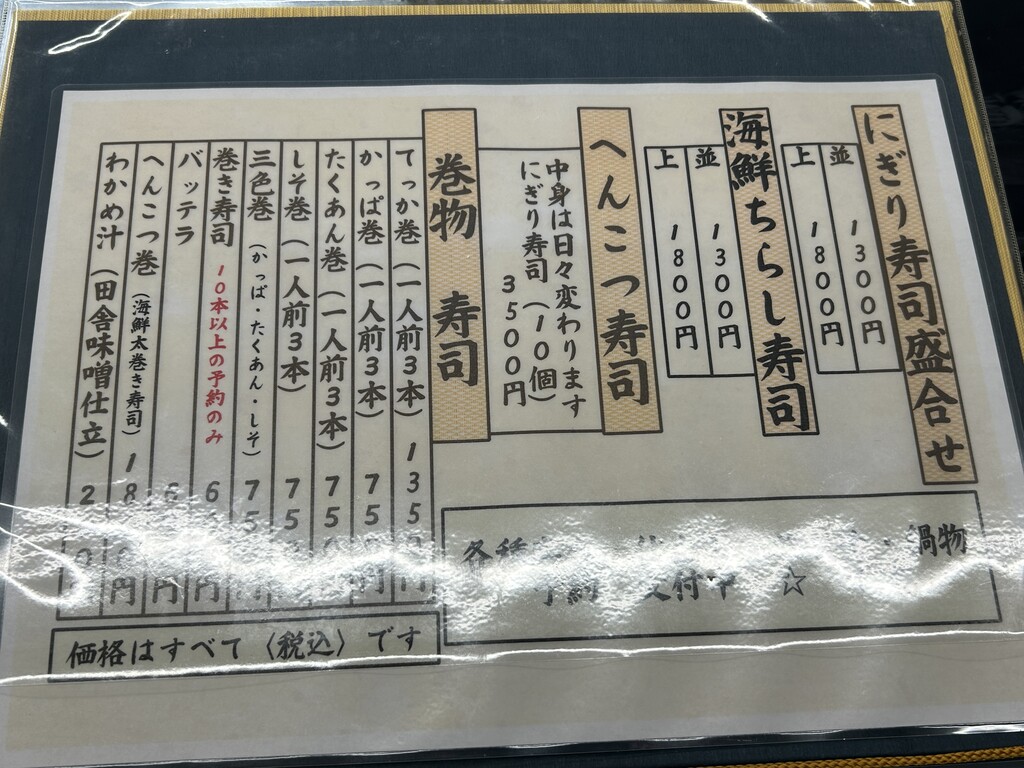 にぎり寿司盛合せ
並 1300円
上 1800円
海鮮ちらし寿司
並 1300円
上 1800円
へんこつ寿司
中身は日々変わります
にぎり寿司(10個)
3500円
巻物 寿司
てっか巻(一人前3本) 135 円
かっぱ巻(一人前3本) 75 円
たくあん巻(一人前3本) 75
しそ巻(一人前3本) 75
三色巻(かっぱ・たくあん・しそ) 75 円
巻き寿司 10本以上の予約のみ 6 円
バッテラ 6 円
へんこつ巻(海鮮太巻き寿司) 18 円
わかめ汁(田舎味噌仕立) 2
各種 ・鍋物
予約 受付中 ☆
価格はすべて〈税込〉です